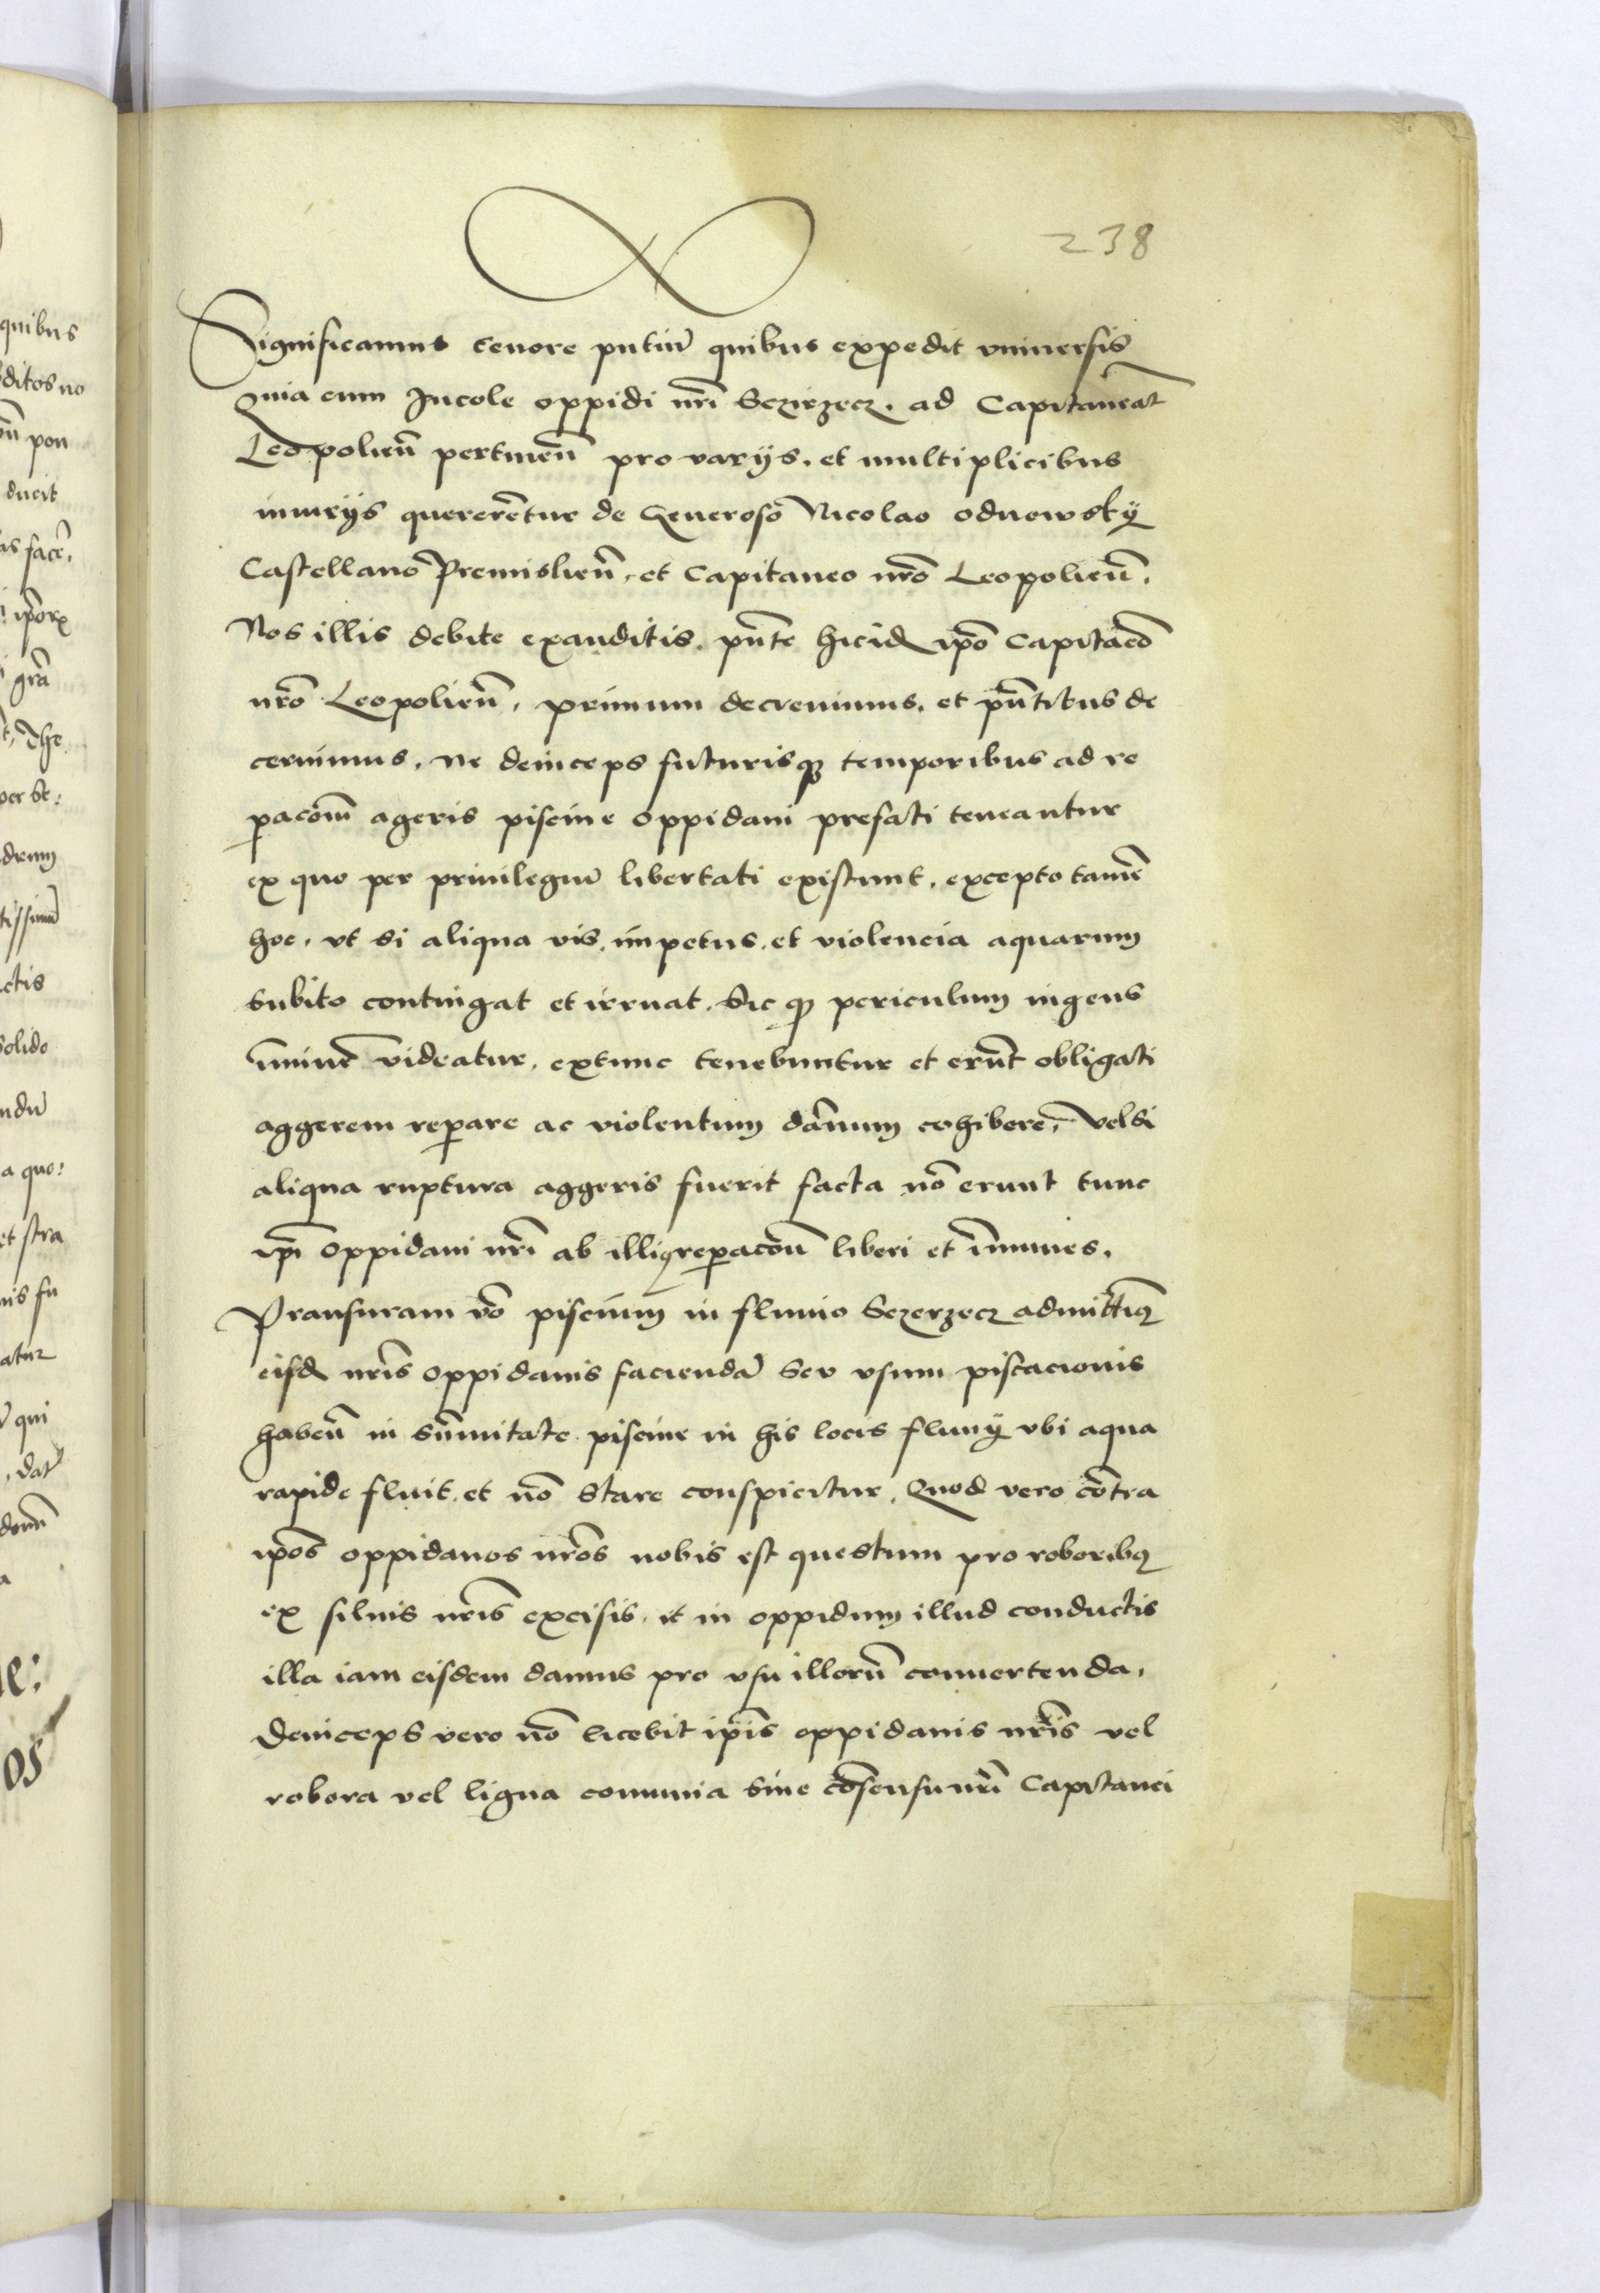 238
Significamus tenore pntiu̅ quibus expedit vniuersis
Quia cum Incole oppidi nr̅i Sczirzecz. ad Capitaneat̅
Leopolien̅ pertinen̅ pro varÿs. et multiplicibus
iniurÿs quereren̅tur de Generoso Nicolao odnowskÿ
Castellano Premislien̅. et Capitaneo nr̅o Leopolien̅.
Nos illis debite exauditis. pn̅te ip̅o Capita̅eo
nr̅o Leopolien̅. primum decreuimus. et pn̅tibus de
cernimus. ne deinceps futurisqꝫ temporibus ad re
paco̅m ageris piscine oppidani prefati teneantur
ex quo per priuilegiu̅ libertati existunt. excepto tame̅
hoc. vt si aliqua vis. impetus. et violencia aquarum
subito contingat et irruat. Sicqꝫ periculum ingens
im̅ine̅ videatur. extunc tenebuntur et eru̅t obligati
aggerem reparare ac violentum dan̅um cohibere. Vel si
aliqua ruptura aggeris fuerit facta no̅ erunt tunc
ip̅i oppidani nr̅i ab illiꝯ reparaco̅n̅ liberi et im̅unes.
Pransuram v̅o piscium in fluuio Sczerzecz admittimꝯ
eisd̅ nr̅is oppidanis facienda̅ Seu vsum piscacionis
haben̅ in sum̅itate piscine in his locis fluuÿ vbi aqua
rapide fluit. et no̅ stare conspicitur. Quod vero co̅tra
ip̅os oppidanos nr̅os nobis est questum pro roboribꝯ
ex siluis nr̅is excisis. et in oppidum illud conductis
illa iam eisdem damus pro vsu illoru̅ conuertenda.
Deinceps vero no̅ licebit ip̅is oppidanis nr̅is vel
robora vel ligna comunia sine co̅sensu nr̅i Capitanei